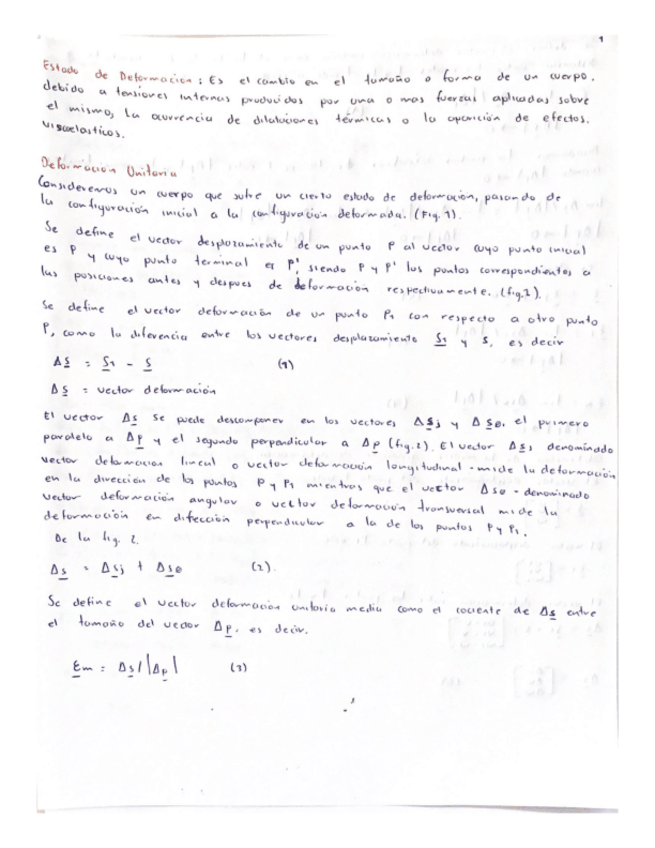 1
Estado de Deformacion : Es el cambio en el tamaño o forma de un cuerpo.
debido a tensiones internas producidos por una o mas fuerzas aplicadas sobre
el mismo, la ocurrencia de dilataciones térmicas o la aparición de efectos.
viscoelasticos.
Deformacion Unitaria
Consideremos un cuerpo que sufre un cierto estado de deformación, pasando de
la configuración inicial a la configuración deformada. (Fig. 1).
Se define el vector desplazamiento de un punto P al vector cuyo punto inicial
es P y cuyo punto terminal es P', siendo P y P' los puntos correspondientes a
las posiciones antes y despues de deformación respectivamente. (fig. 2).
Se define el vector deformación de un punto P₁ con respecto a otro punto
P, como la diferencia entre los vectores desplazamiento S₁ y S, es decir
ΔS = S₁ - S (1)
ΔS = vector deformación
El vector ΔS se puede descomponer en los vectores ΔSj y ΔSθ, el primero
paralelo a Δp y el segundo perpendicular a Δp (fig. 2). El vector ΔSj denominado
vector deformacion lineal o vector deformación longitudinal - mide la deformación
en la direccion de los puntos P y P₁ mientras que el vector ΔSθ - denominado
vector deformación angular o vector deformación transversal mide la
deformación en dirección perpendicular a la de los puntos P y P₁.
De la fig. 2.
ΔS = ΔSj + ΔSθ (2).
Se define el vector deformacion unitario media como el cociente de ΔS entre
el tamaño del vector Δp, es decir.
Em = ΔS/|Δp| (3)